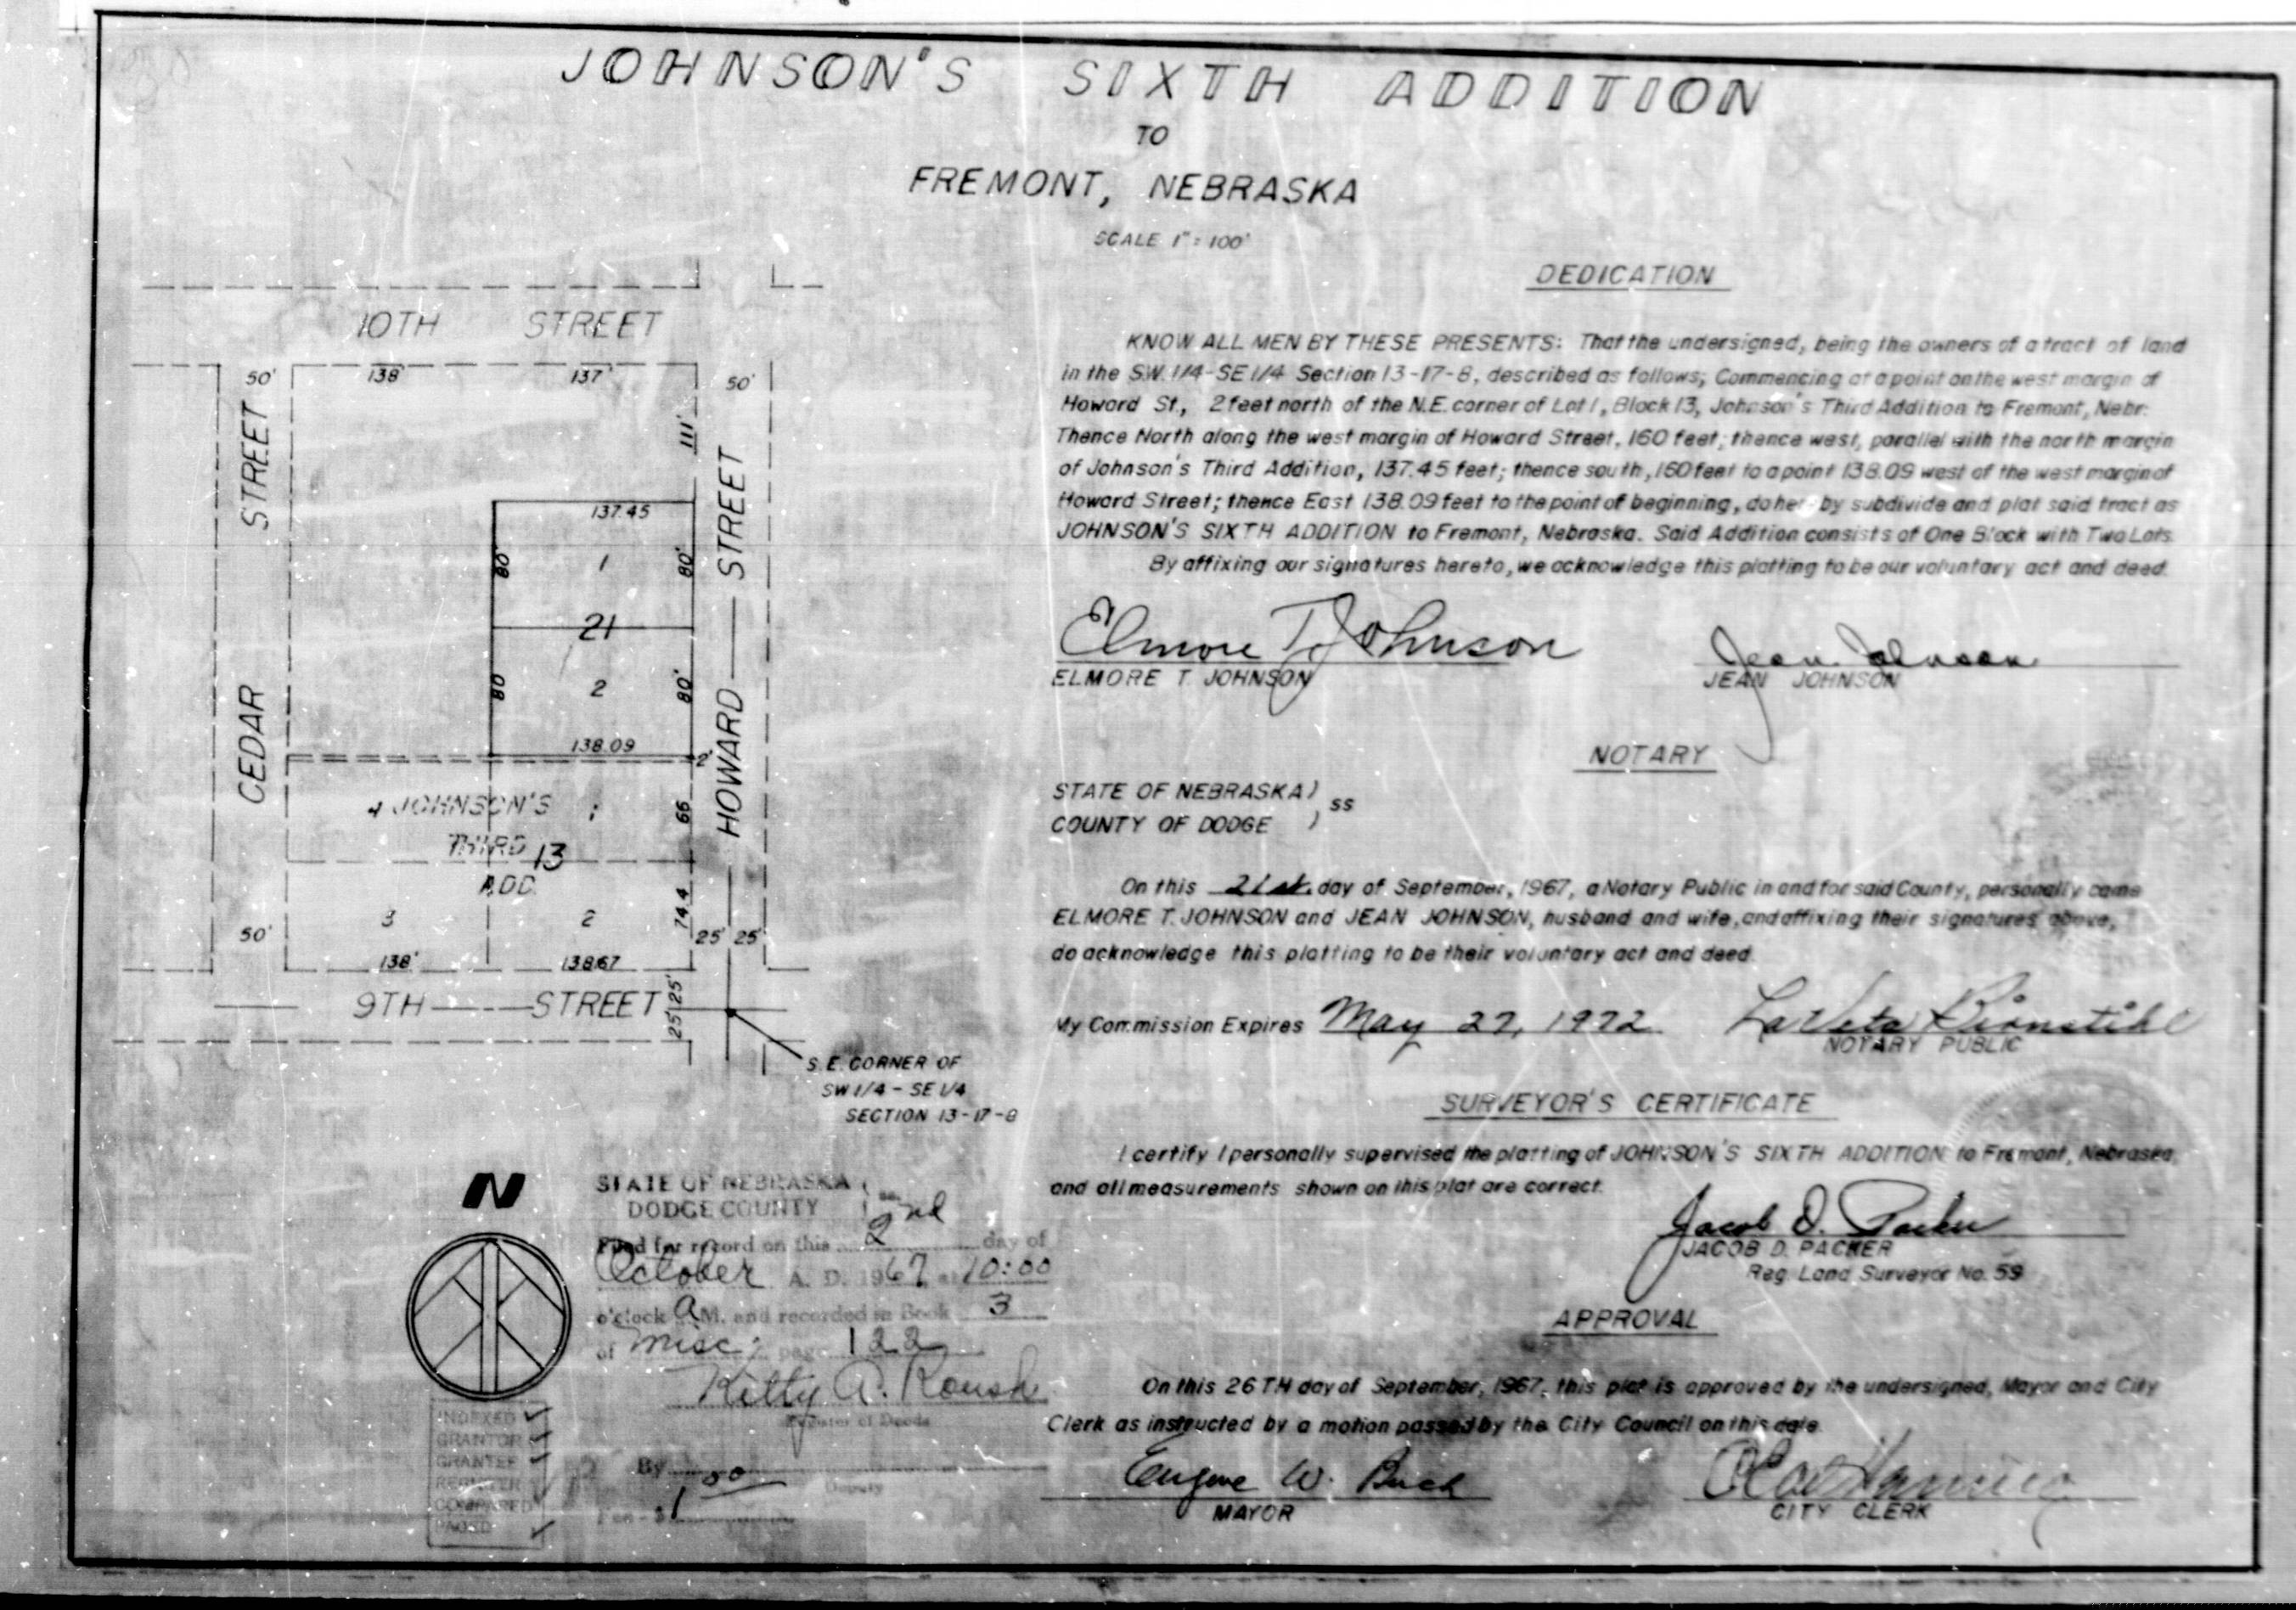 JOHNSON'S SIXTH ADDITION
TO
FREMONT, NEBRASKA
SCALE 1" = 100'
10TH STREET
50' 138' 137' 50'
STREET
111'
137.45
80' 1 80'
STREET
21
80' 2 80'
138.09
2'
CEDAR
HOWARD
4 JOHNSON'S 1
66
THIRD 13
ADD.
3 2
74.4
50' 25' 25'
138' 138.67
9TH STREET
25' 25'
S.E. CORNER OF
SW 1/4 - SE 1/4
SECTION 13-17-8
N
STATE OF NEBRASKA
DODGE COUNTY ss.
Filed for record on this 2nd day of
October A. D. 1967, at 10:00
o'clock A M. and recorded in Book 3
of Misc; page 122
Kitty A. Roush
Register of Deeds
By
Deputy
Fee - $1 50
INDEXED ✓
GRANTOR ✓
GRANTEE ✓
REGISTER
COMPARED
PAGED ✓
DEDICATION
KNOW ALL MEN BY THESE PRESENTS: That the undersigned, being the owners of a tract of land
in the S.W. 1/4-SE 1/4 Section 13-17-8, described as follows; Commencing at a point on the west margin of
Howard St., 2 feet north of the N.E. corner of Lot 1, Block 13, Johnson's Third Addition to Fremont, Nebr.
Thence North along the west margin of Howard Street, 160 feet; thence west, parallel with the north margin
of Johnson's Third Addition, 137.45 feet; thence south, 160 feet to a point 138.09 west of the west margin of
Howard Street; thence East 138.09 feet to the point of beginning, do hereby subdivide and plat said tract as
JOHNSON'S SIXTH ADDITION to Fremont, Nebraska. Said Addition consists of One Block with Two Lots.
By affixing our signatures hereto, we acknowledge this platting to be our voluntary act and deed.
Elmore T. Johnson Jean Johnson
ELMORE T. JOHNSON JEAN JOHNSON
NOTARY
STATE OF NEBRASKA )
) ss
COUNTY OF DODGE )
On this 21st. day of September, 1967, a Notary Public in and for said County, personally came
ELMORE T. JOHNSON and JEAN JOHNSON, husband and wife, and affixing their signatures above,
do acknowledge this platting to be their voluntary act and deed.
My Commission Expires May 27, 1972 LaVeta
NOTARY PUBLIC
SURVEYOR'S CERTIFICATE
I certify I personally supervised the platting of JOHNSON'S SIXTH ADDITION to Fremont, Nebraska,
and all measurements shown on this plat are correct.
Jacob D. Packer
JACOB D. PACKER
Reg. Land Surveyor No. 59
APPROVAL
On this 26TH day of September, 1967, this plat is approved by the undersigned, Mayor and City
Clerk as instructed by a motion passed by the City Council on this date.
Eugene W. Buck
MAYOR CITY CLERK